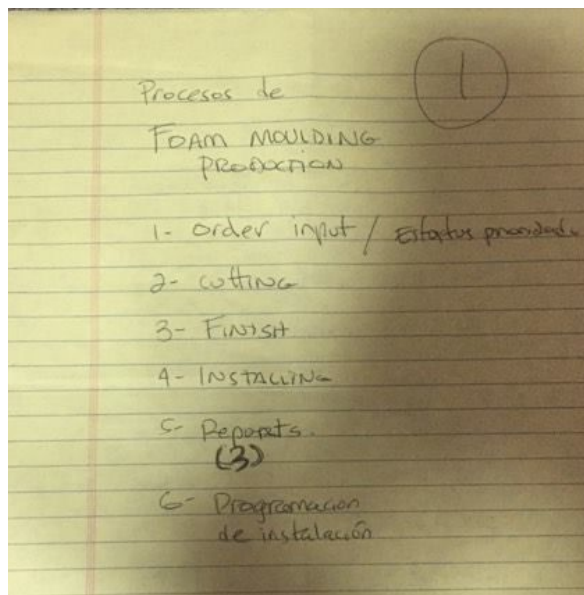 1
Procesos de
FOAM MOULDING
PRODUCTION
1- order input / Estatus prioridad
2- CUTTING
3- FINISH
4- INSTALLING
5- Reports.
(3)
6- Programacion
de instalación